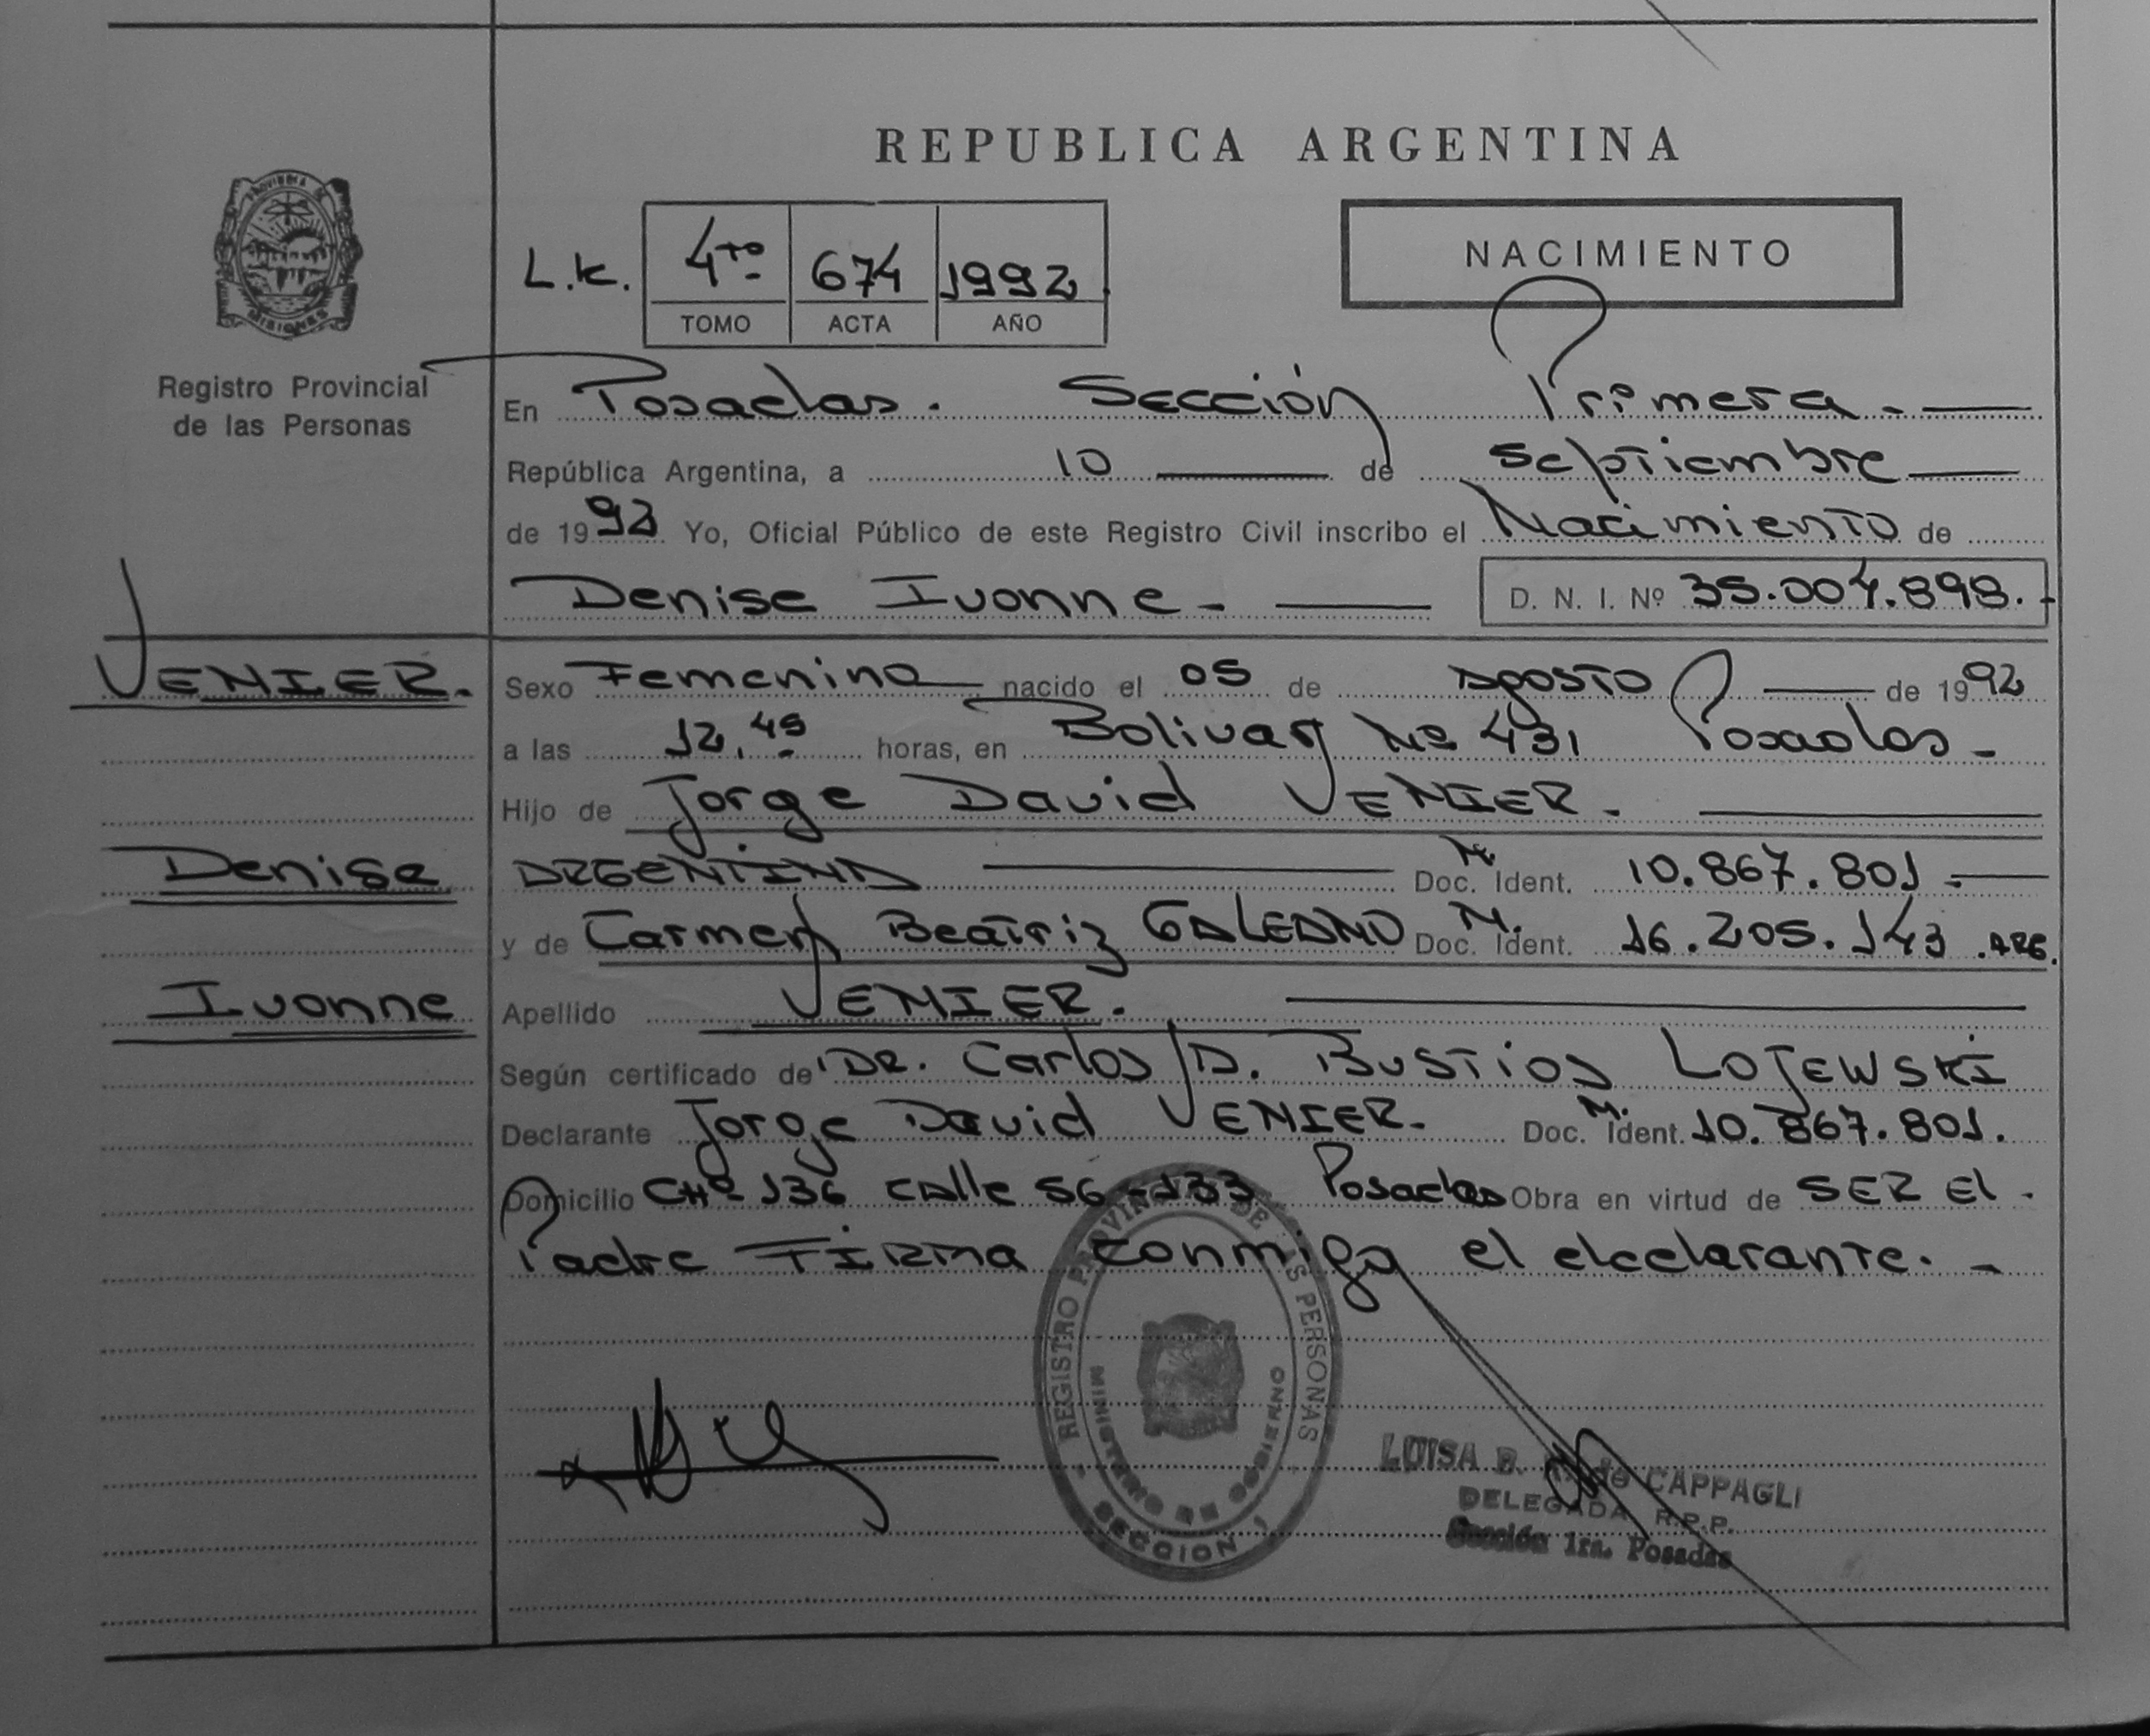 REPUBLICA ARGENTINA
PROVINCIA DE
MISIONES
Registro Provincial
de las Personas
L.K. 4to 674 1992
TOMO ACTA AÑO
NACIMIENTO
En Posadas. Sección Primera.
República Argentina, a 10 de septiembre
de 1992 Yo, Oficial Público de este Registro Civil inscribo el Nacimiento de
Denise Ivonne. D. N. I. Nº 35.004.898.
VENIER. Sexo Femenino nacido el 05 de Agosto de 1992
a las 12,45 horas, en Bolivar Nº 431 Posadas
Hijo de Jorge David VENIER.
Denise ARGENTINA M. Doc. Ident. 10.867.801
y de Carmen Beatriz GALEANO M. Doc. Ident. 16.205.143 ARG.
Ivonne Apellido VENIER.
Según certificado de DR. Carlos D. BUSTIOS LOJEWSKI
Declarante Jorge David VENIER. M. Doc. Ident. 10.867.801.
Domicilio CHº 136 calle 56-133 Posadas Obra en virtud de SER El
Padre Firma conmigo el declarante.
REGISTRO PROVINCIAL DE LAS PERSONAS
MINISTERIO DE GOBIERNO
SECCION 1
LUISA B. de CAPPAGLI
DELEGADA R.P.P.
Sección 1ra. Posadas